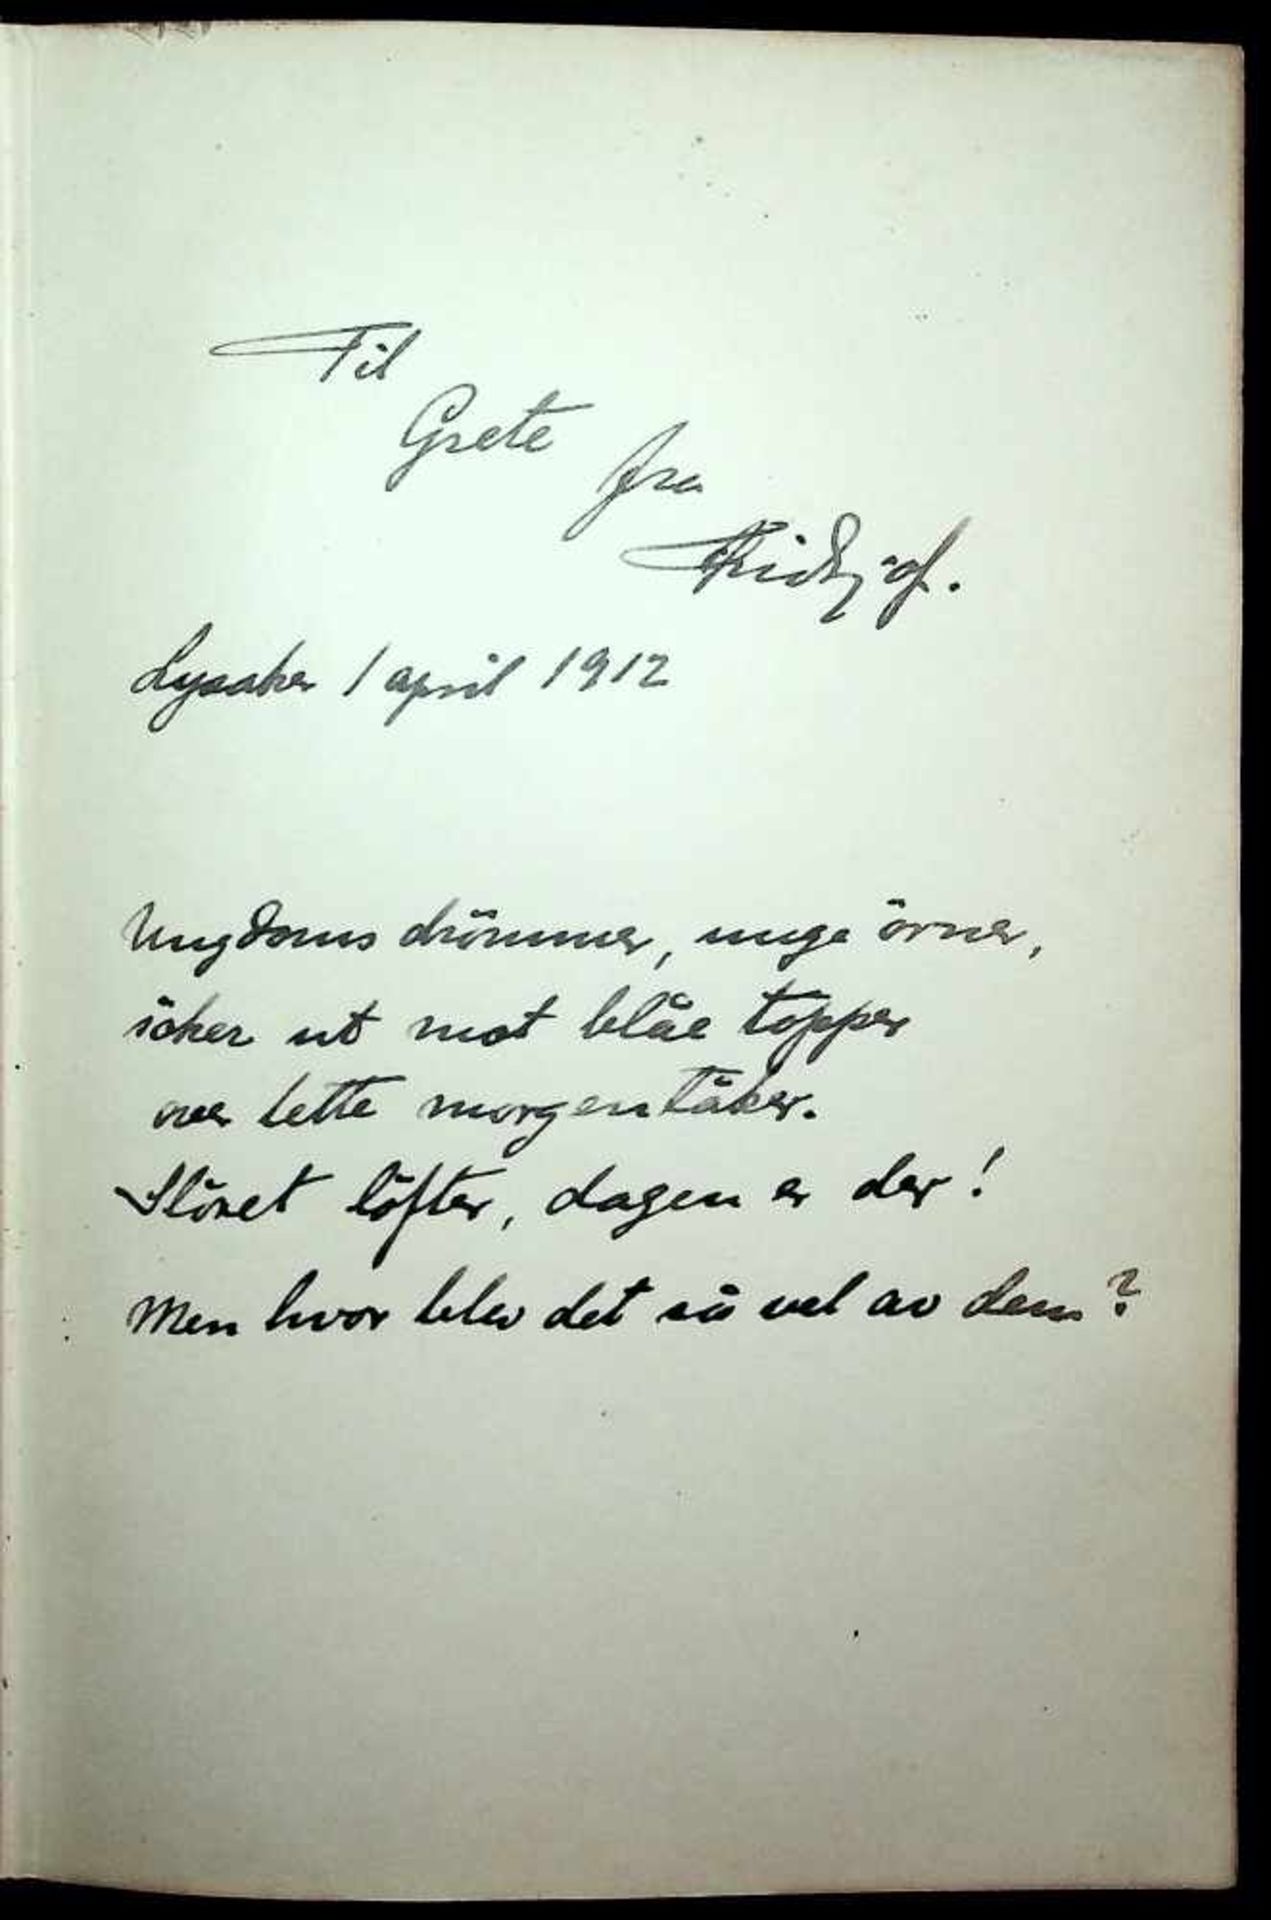 Til
Grete
fra
Fridtjof.
Lysaker 1 april 1912
Ungdoms drömmer, unge örner,
söker ut mot blåe topper
over lette morgentåker.
Slöret löfter, dagen er der!
Men hvor blev det så vel av dem?